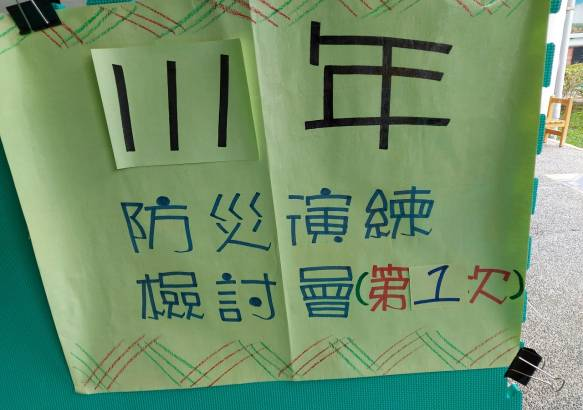 111年
防災演練
檢討會(第1次)